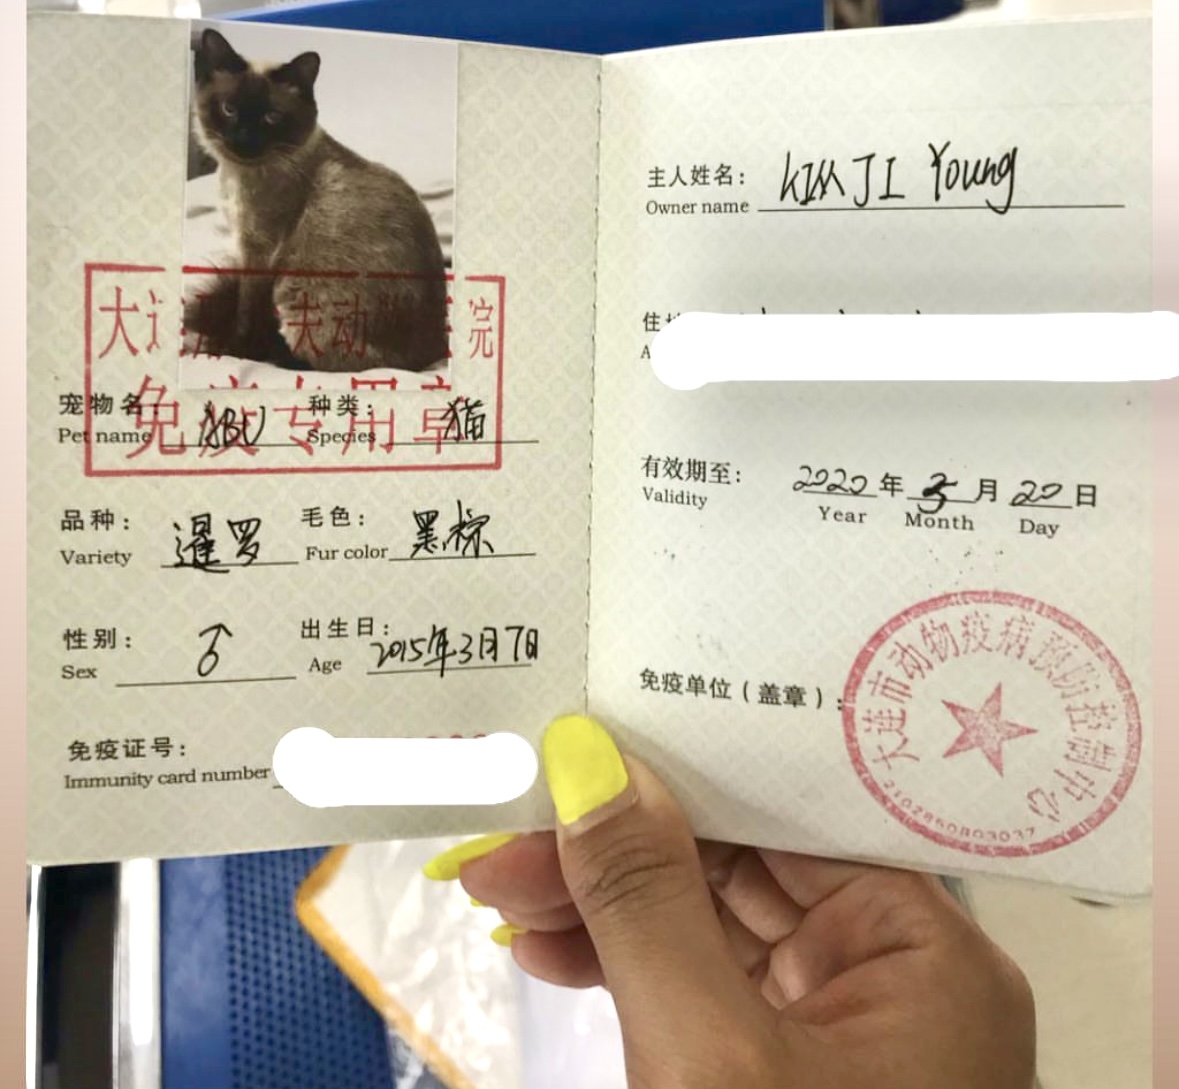 大连 夫动 医院
免疫专用章
宠物名: 种类: 猫
Pet name Species
品种: 暹罗 毛色: 黑棕
Variety Fur color
性别: ♂ 出生日: 2015年3月7日
Sex Age
免疫证号:
Immunity card number
主人姓名: KIM JI Young
Owner name
有效期至: 2020年3月20日
Validity Year Month Day
免疫单位(盖章):
大连市动物疫病预防控制中心
2102850803037